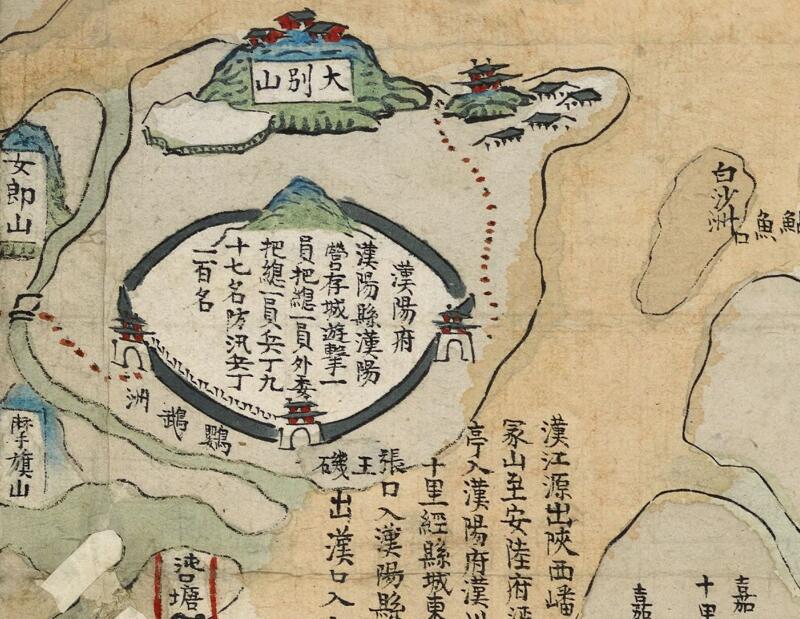 大別山
女郎山
白沙洲
魚口
漢陽府
漢陽縣漢陽
營存城遊擊一
員把總一員外委
把總一員兵丁九
十七名防汛兵丁
二百名
鸚鵡洲
摩旗山
王磯
漢江源出陝西嶓
冢山至安陸府
亭入漢陽府漢川
十里經縣城東
張口入漢陽縣
出漢口入
塘
嘉
十里
嘉